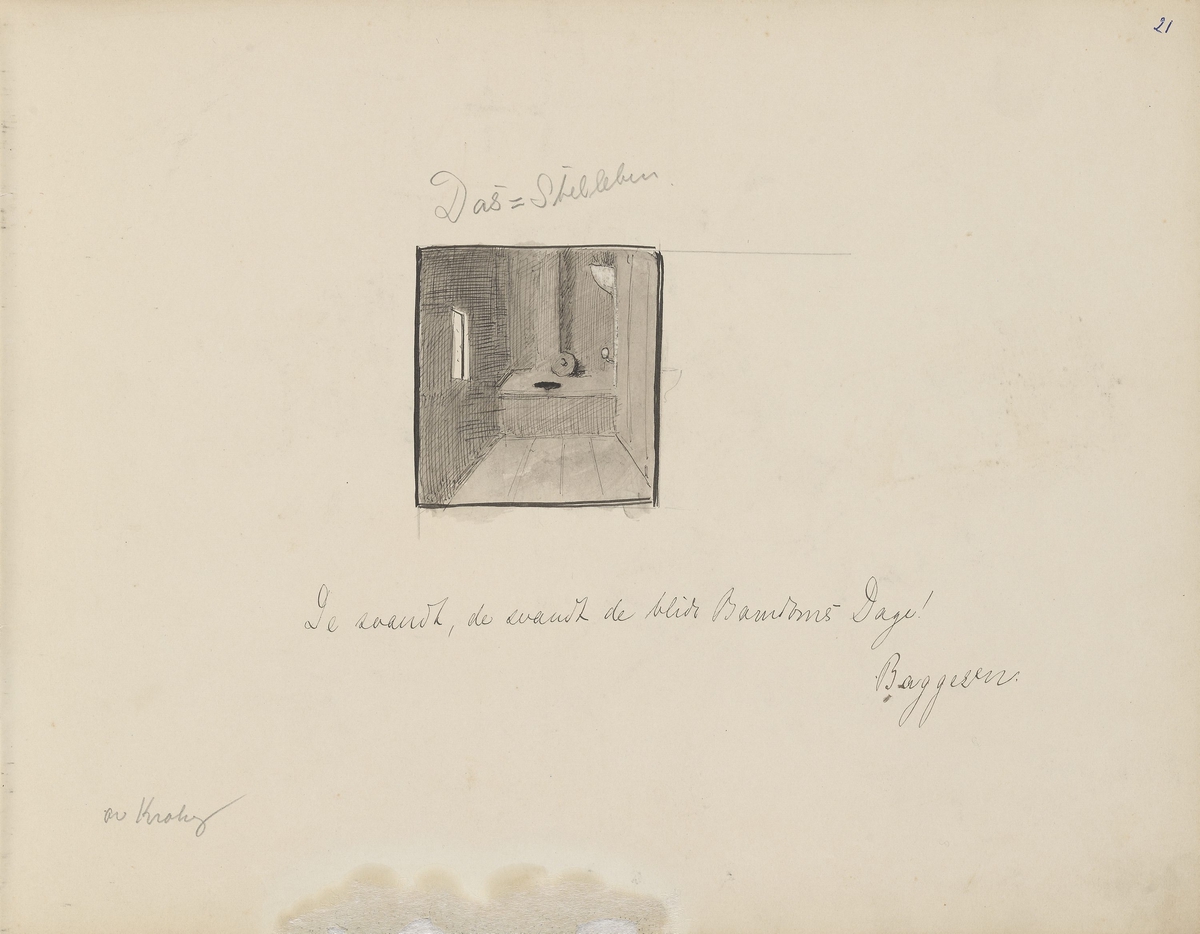 21
Das = Stilleben
De svandt, de svandt de blide Barndoms Dage!
Baggesen.
av Krohg